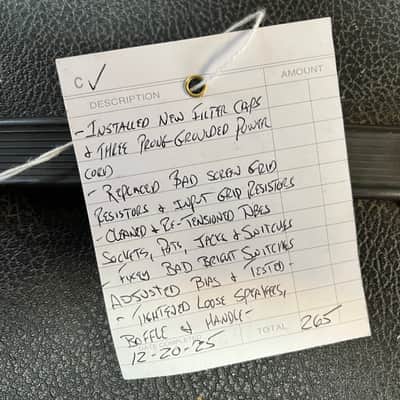 C ✓
DESCRIPTION AMOUNT
- INSTALLED NEW FILTER CAPS
& THREE PRONG GROUNDED POWER
CORD
- REPLACED BAD SCREEN GRID
RESISTORS & INPUT GRID RESISTORS
- CLEANED & RE-TENSIONED TUBES
SOCKETS, POTS, JACKS & SWITCHES
- FIXED BAD BRIGHT SWITCHES
ADJUSTED BIAS & TESTED -
- TIGHTENED LOOSE SPEAKERS,
BAFFLE & HANDLE -
DATE COMPLETED TOTAL 265
12-20-25